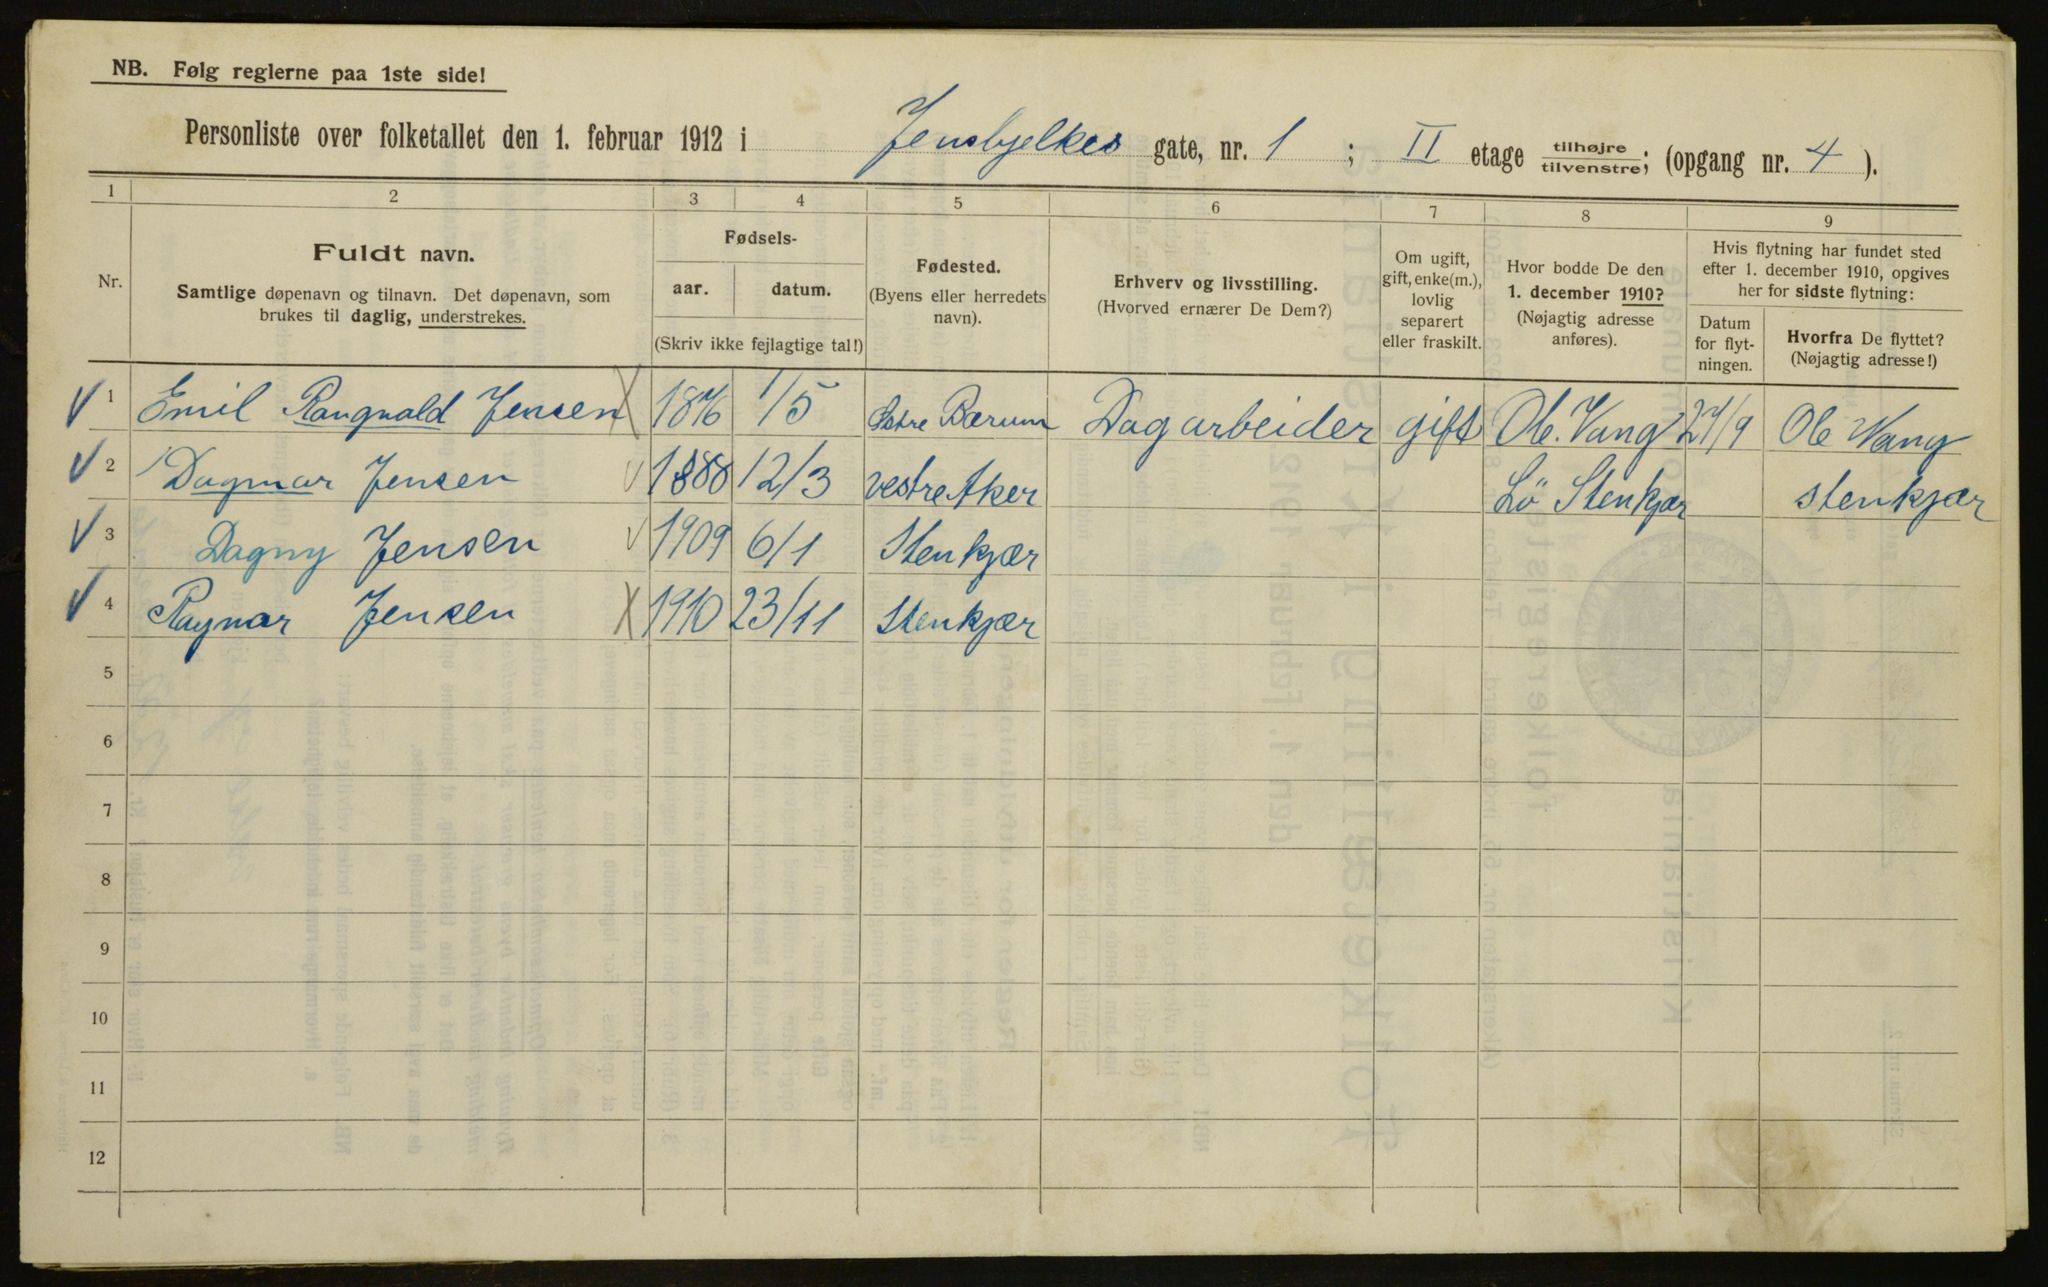 NB. Følg reglerne paa 1ste side!
Personliste over folketallet den 1. februar 1912 i Jensbjelkes gate, nr. 1 ; II etage tilhøjre tilvenstre; (opgang nr. 4 ).
1 2 3 4 5 6 7 8 9
Nr.
Fuldt navn.
Samtlige døpenavn og tilnavn. Det døpenavn, som
brukes til daglig, understrekes.
Fødsels-
aar. datum.
(Skriv ikke fejlagtige tal!)
Fødested.
(Byens eller herredets
navn).
Erhverv og livsstilling.
(Hvorved ernærer De Dem?)
Om ugift,
gift, enke(m.),
lovlig
separert
eller fraskilt.
Hvor bodde De den
1. december 1910?
(Nøjagtig adresse
anføres).
Hvis flytning har fundet sted
efter 1. december 1910, opgives
her for sidste flytning:
Datum
for flyt-
ningen.
Hvorfra De flyttet?
(Nøjagtig adresse!)
1 Emil Rangvald Jensen 1876 1/5 Bærum Dagarbeider gift Ole. Vang 27/9 Ole Wang
2 Dagmar Jensen 1888 12/3 vestre Aker Lö Stenkjær stenkjær
3 Dagny Jensen 1909 6/1 Stenkjær
4 Ragnar Jensen 1910 23/11 Stenkjær
5
6
7
8
9
10
11
12